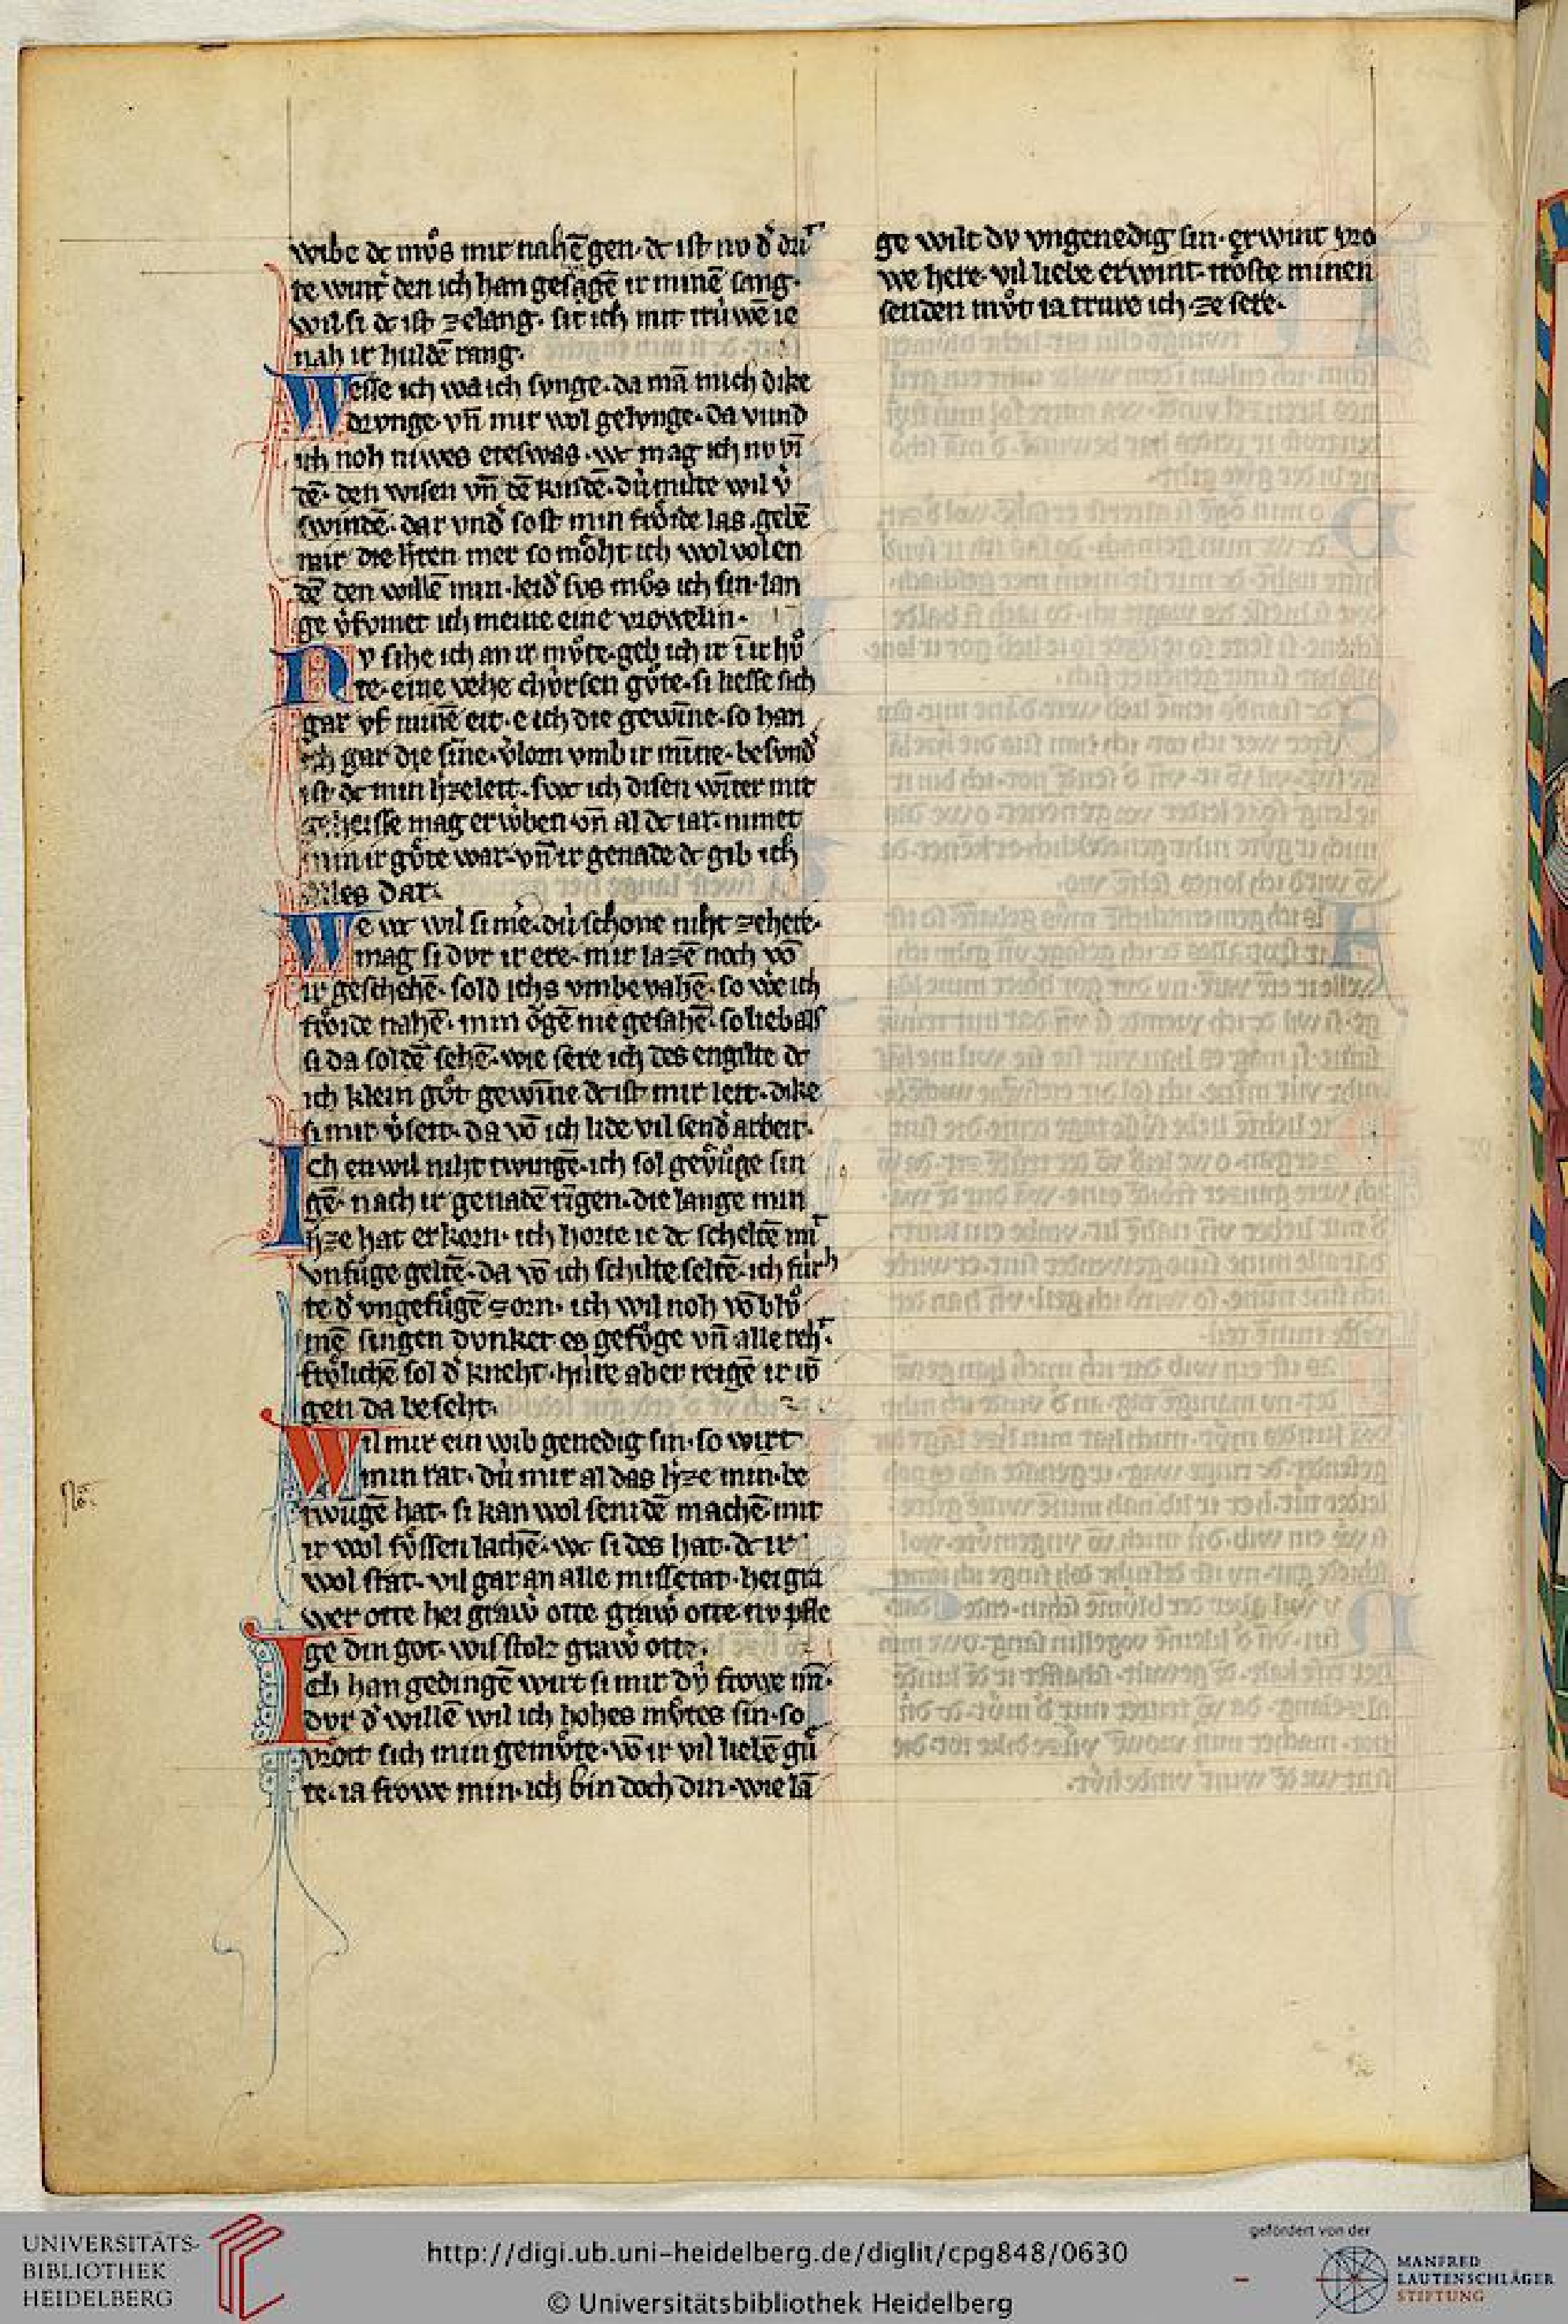 wibe dc můs mir nahē gen· dc iſt nv d̓ dri
te wint̓ den ich han geſagē ir minē ſang·
wil ſi dc iſt zelang· ſit ich mit trúwē ie
nah ir huldē rang·
Weſſe ich wa ich ſvnge· da mā mich dike
drvnge· vn̄ mir wol gelvnge· da vund
ich noh núwes eteſwas· wc mag ich nv vī
dē· den wiſen vn̄ dē kindē· dú milte wil v̓
ſwindē· dar vnd̓ ſo iſt min frőide las· gebē
mir die h̓ren mer ſo mőht ich wol volen
dē den willē min· leid̓ ſvs můs ich ſin· lan
ge v̓ſvmet ich meine eine vrowelin·
Nv ſihe ich an ir můte· geb ich ir ī ir hů
te· eine vehe chúrſen gůte· ſi lieſſe ſich
gar vf minē eit· e ich die gewīne· ſo han
ich gar die ſīne· v̓lorn vmb ir mīne· beſvnd̓
iſt dc min h̓zeleit· ſwc ich diſen wīter mit
geheiſſe mag erw̓ben· vn̄ al dc iar· nimet
min ir gůte war· vn̄ ir genade dc gib ich
alles dar·
We wc wil ſi me· dú ſchone niht zehere·
mag ſi dvr ir ere· mir lazē noch vō
ir geſchehē· ſold ichs vmbevahē· ſo we ich
frőide nahē· min ŏgē nie geſahē· ſo liebas
ſi da ſoldē ſehē· wie ſere ich des engilte dc
ich klein gůt gewīne dc iſt mir leit· dike
ſi mir v̓ſeit· da vō ich lide vil ſend̓ arbeit·
Ich enwil niht twingē· ich ſol gevůge ſin
gē· nach ir genadē rīgen· die lange min
h̓ze hat erkorn· ich horte ie dc ſcheltē mit
vnfůge geltē· da vō ich ſchilte ſeltē· ich fúrh
te d̓ vngefůgē zorn· ich wil noh vō blů
mē ſingen dvnket es gefůge vn̄ alle reht·
frőlichē ſol d̓ kneht· húre aber reigē ir iv̄
gen da beſeht·
Wil mir ein wib genedig ſin· ſo wirt
min rat· dú mir al das h̓ze min· be
twūgē hat· ſi kan wol ſenidē machē· mit
ir wol ſůſſen lachē· wc ſi des hat· dc ir
wol ſtat· vil gar an alle miſſetat· hei gra
wer otte hei graw̓ otte graw̓ otte nv pfle
ge din got· wiſ ſtolz graw̓ otte·
Ich han gedingē wirt ſi mir dú frowe mī·
dvr d̓ willē wil ich hohes můtes ſin· ſo
vrőit ſich min gemůte· vō ir vil liebē gů
te· ia frowe min· ich bin doch din· wie lā
ge wilt dv vngenedig ſin· erwint vro
we here· vil liebe erwint· trőſte minen
ſenden můt ia trure ich ze ſere·
UNIVERSITÄTS-
BIBLIOTHEK
HEIDELBERG
http://digi.ub.uni-heidelberg.de/diglit/cpg848/0630
© Universitätsbibliothek Heidelberg
gefördert von der
MANFRED
LAUTENSCHLÄGER
STIFTUNG